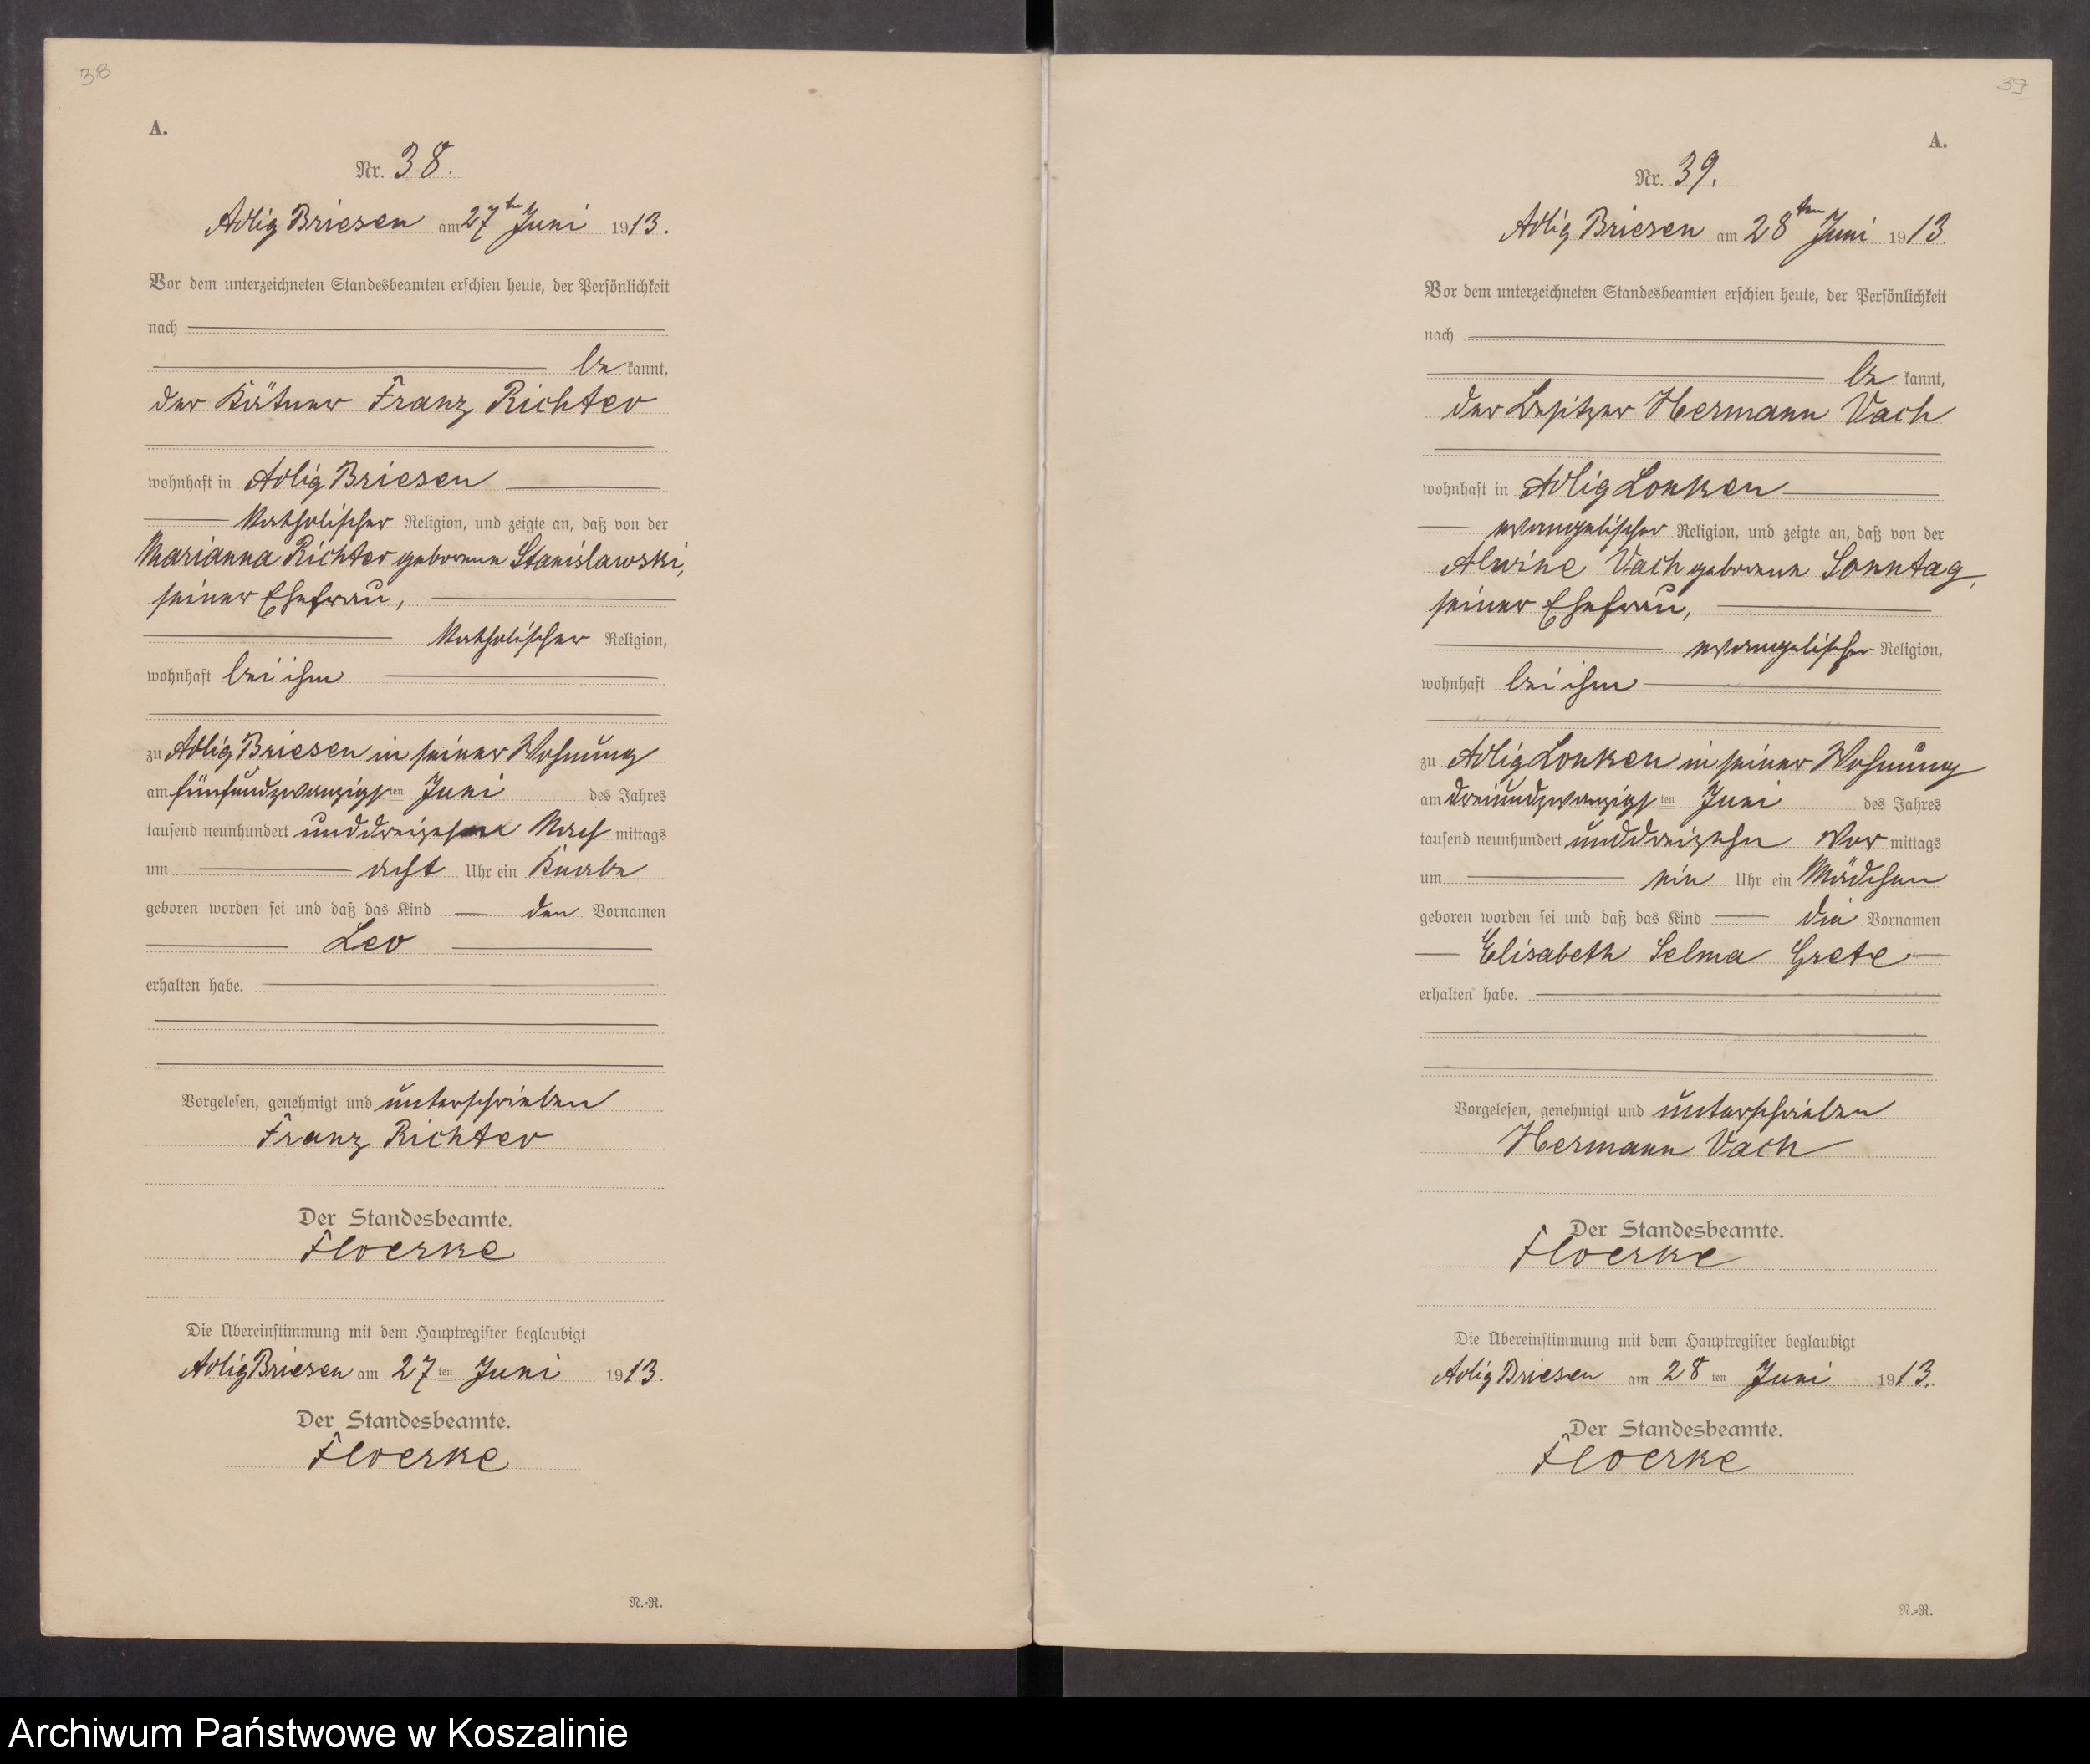 38
A.
Nr. 38.
Adlig Briesen am 27ten Juni 1913.
Vor dem unterzeichneten Standesbeamten erschien heute, der Persönlichkeit
nach
be kannt,
der Kätner Franz Richter
wohnhaft in Adlig Briesen
katholischer Religion, und zeigte an, daß von der
Marianna Richter geborene Stanislawski,
seiner Ehefrau,
katholischer Religion,
wohnhaft bei ihm
zu Adlig Briesen in seiner Wohnung
am fünfundzwanzigsten Juni des Jahres
tausend neunhundert und dreizehn Nach mittags
um acht Uhr ein Knabe
geboren worden sei und daß das Kind den Vornamen
Leo
erhalten habe.
Vorgelesen, genehmigt und unterschrieben
Franz Richter
Der Standesbeamte.
Floerke
Die Übereinstimmung mit dem Hauptregister beglaubigt
Adlig Briesen am 27ten Juni 1913.
Der Standesbeamte.
Floerke
N.-R.
39
A.
Nr. 39.
Adlig Briesen am 28ten Juni 1913.
Vor dem unterzeichneten Standesbeamten erschien heute, der Persönlichkeit
nach
be kannt,
der Besitzer Hermann Vach
wohnhaft in Adlig Lonken
evangelischer Religion, und zeigte an, daß von der
Alwine Vach geborene Sonntag,
seiner Ehefrau,
evangelischer Religion,
wohnhaft bei ihm
zu Adlig Lonken in seiner Wohnung
am dreiundzwanzigsten Juni des Jahres
tausend neunhundert und dreizehn Vor mittags
um ein Uhr ein Mädchen
geboren worden sei und daß das Kind die Vornamen
Elisabeth Selma Grete
erhalten habe.
Vorgelesen, genehmigt und unterschrieben
Hermann Vach
Der Standesbeamte.
Floerke
Die Übereinstimmung mit dem Hauptregister beglaubigt
Adlig Briesen am 28ten Juni 1913.
Der Standesbeamte.
Floerke
N.-R.
Archiwum Państwowe w Koszalinie